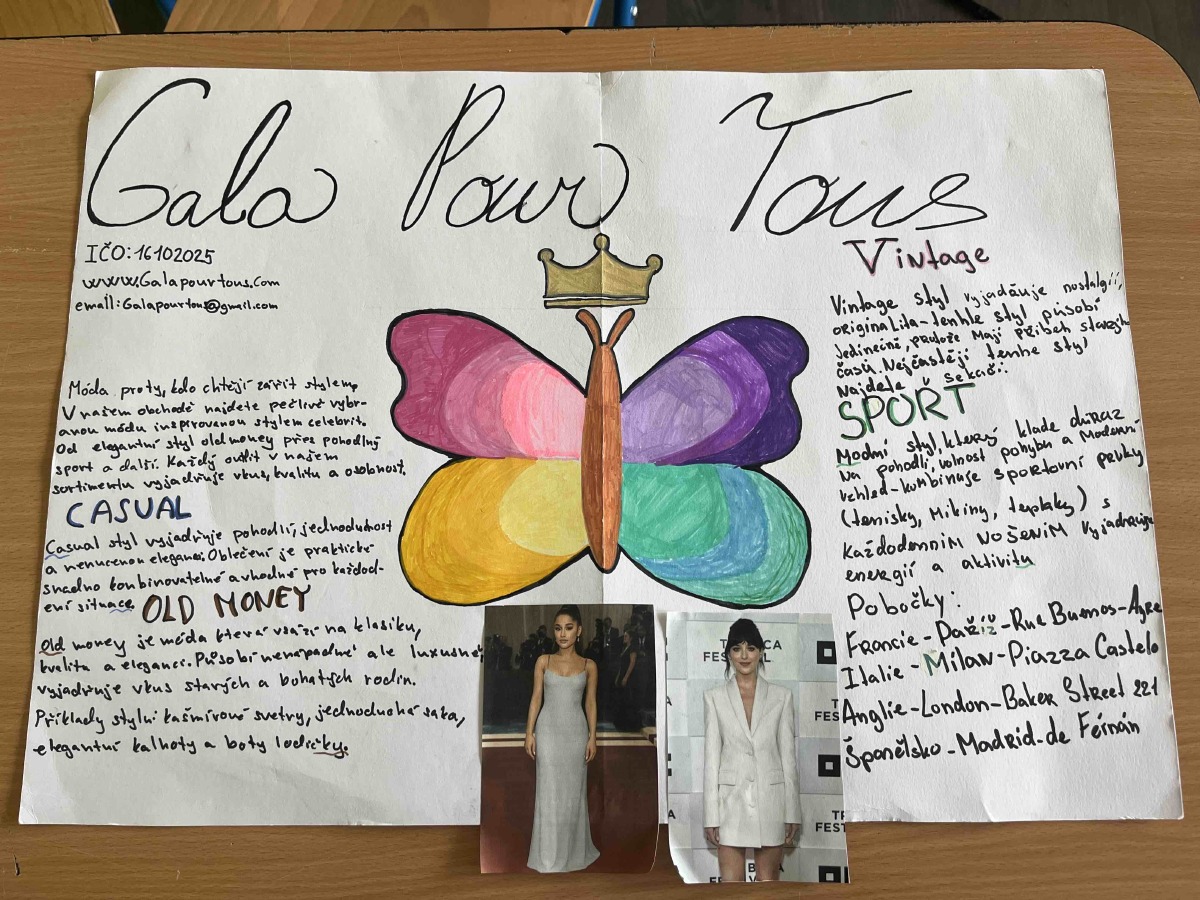 Gala Pour Tous
IČO:16102025
www.Galapourtous.Com
email:Galapourtous@gmail.com
Móda proty, kdo chtějí zářit stylem
V našem obchodě najdete pečlivě vybr-
anou módu inspirovanou stylem celebrit.
Od elegantní styl oldmoney přes pohodlný
sport a další. Každý outfit v našem
sortimentu vyjadřuje vkus, kvalitu a osobnost.
CASUAL
Casual styl vyjadřuje pohodlí, jednoduhost
a nenucenou eleganci. Oblečení je praktické
snadno kombinovatelné a vhodné pro každod-
ení situace
OLD MONEY
Old money je móda která vsází na klasiku,
kvalitu a eleganci. Působí nenápadně ale luxusně
vyjadřuje vkus starých a bohatých rodin.
Příklady stylu: kašmírové svetry, jednoduchá saka,
elegantní kalhoty a boty lodičky.
Vintage
Vintage styl vyjadřuje nostalgii,
originalita-tenhle styl působí
Jedinečně, protože Mají příběh starejch
časů. Nejčastěji tenhe styl
Najdete v sekáči.
SPORT
Modní styl, který klade důraz
na pohodlí, volnost pohybu a Moderní
vzhled-kombinuje sportovní prvky
(tenisky, Mikiny, teplaky) s
každodennim NOŠENIM Vyjadřuje
energii a aktivitu
Pobočky:
Francie-Paříž-Rue Buenos-Ayre
Italie-Milan-Piazza Castelo
Anglie-London-Baker Street 221
Španělsko-Madrid-de Férnán
TRIBECA
FESTIVAL